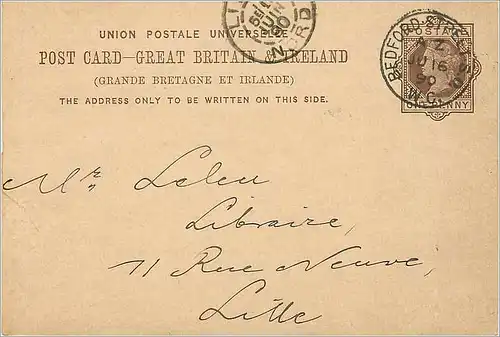 UNION POSTALE UNIVERSELLE
POST CARD—GREAT BRITAIN & IRELAND
(GRANDE BRETAGNE ET IRLANDE)
THE ADDRESS ONLY TO BE WRITTEN ON THIS SIDE.
LILLE
NORD
BEDFORD ST
A Z
JU 16
90
W.C.
POSTAGE
ONE PENNY
Mr. Leleu
Libraire,
11 Rue Neuve,
Lille